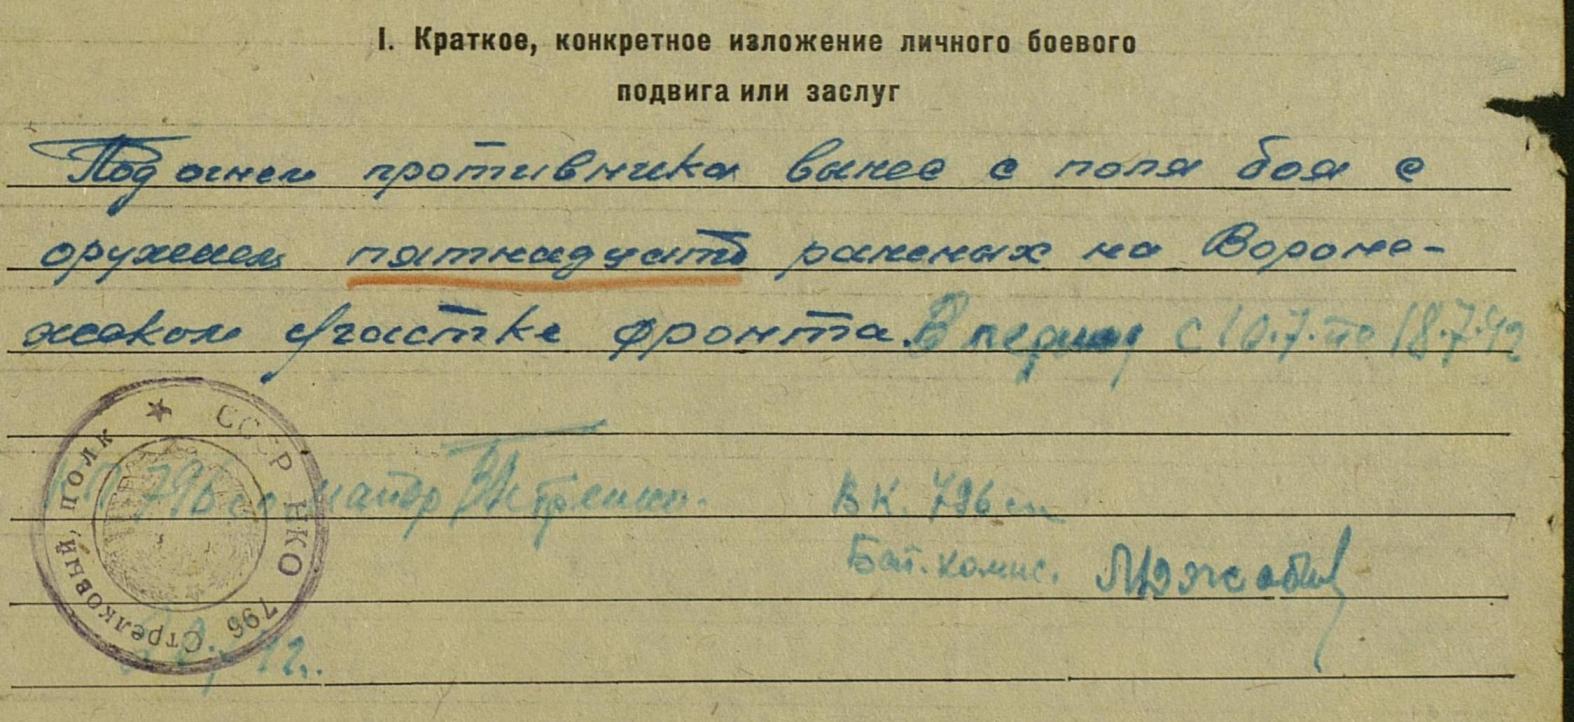 I. Краткое, конкретное изложение личного боевого
подвига или заслуг
Под огнем противника вынес с поля боя с
оружием пятнадцать раненых на Вороне-
жском участке фронта. В период с 10.7. по 18.7.42
КП 796 сп майор Петренко.
ВК. 796 сп
Бат. комис.
СССР НКО 796 Стрелковый, полк